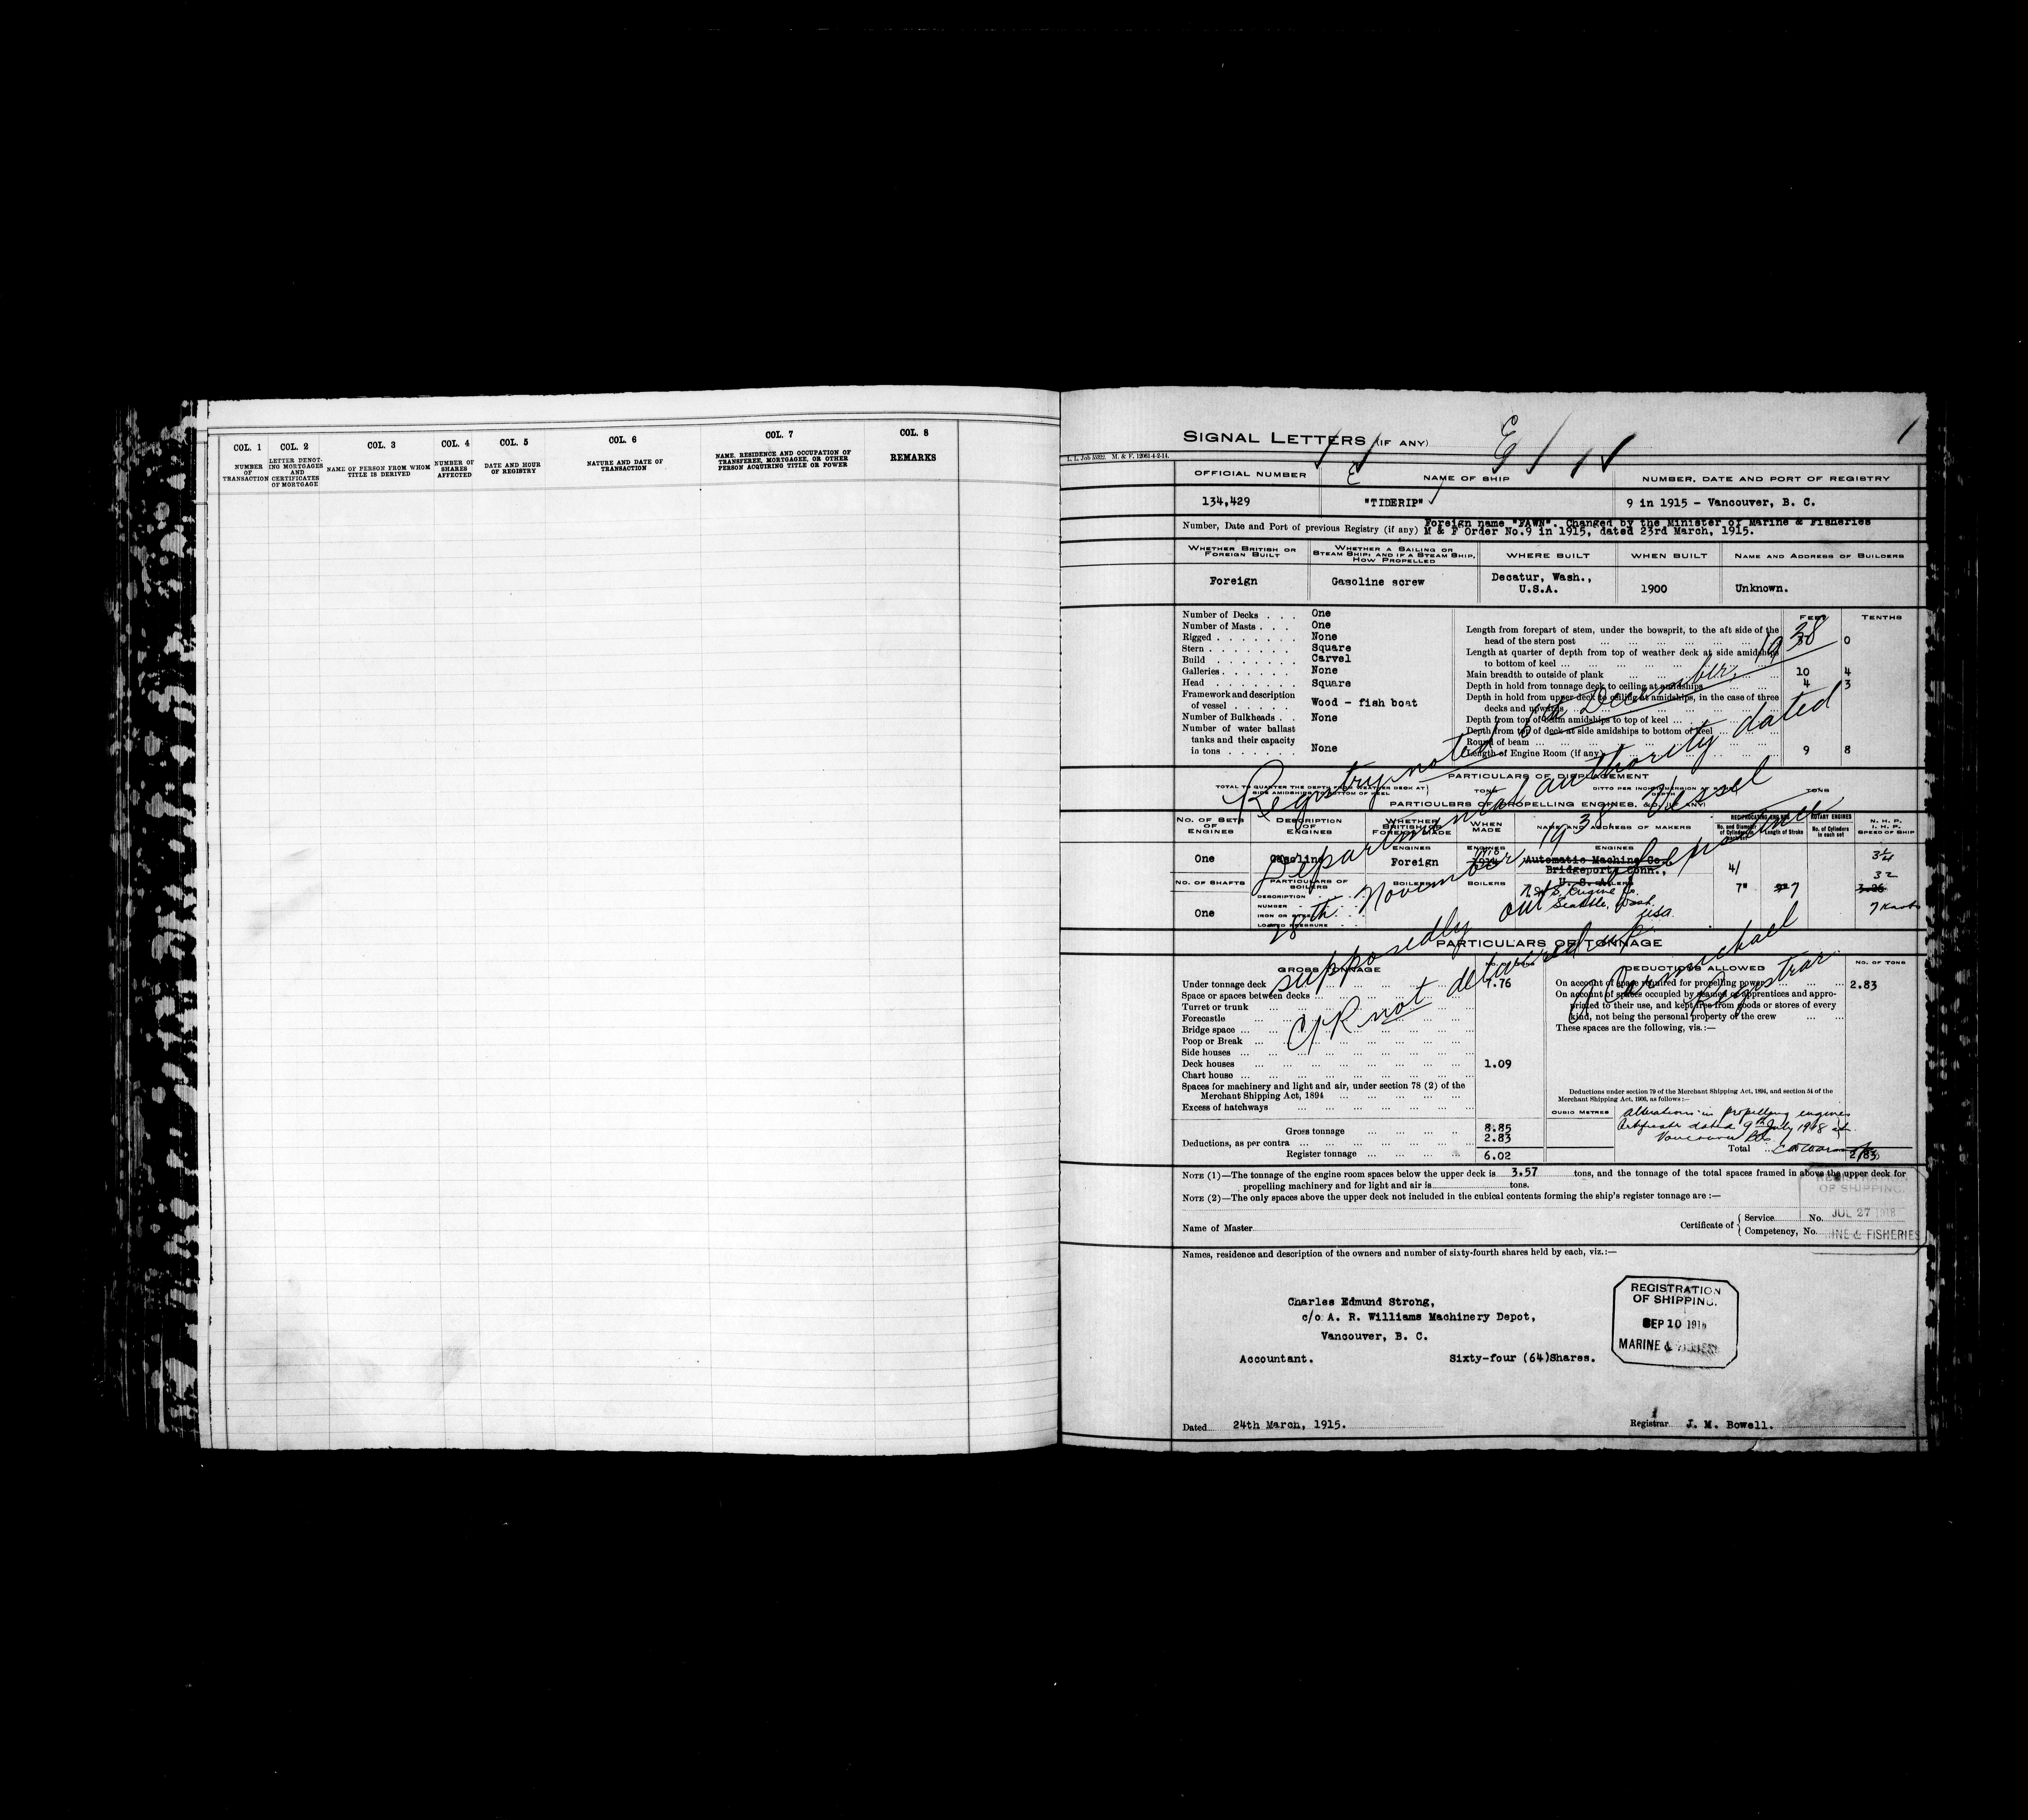 COL. 1
NUMBER
OF
TRANSACTION
COL. 2
LETTER DENOT-
ING MORTGAGES
AND
CERTIFICATES
OF MORTGAGE
COL. 3
NAME OF PERSON FROM WHOM
TITLE IS DERIVED
COL. 4
NUMBER OF
SHARES
AFFECTED
COL. 5
DATE AND HOUR
OF REGISTRY
COL. 6
NATURE AND DATE OF
TRANSACTION
COL. 7
NAME, RESIDENCE AND OCCUPATION OF
TRANSFEREE, MORTGAGEE, OR OTHER
PERSON ACQUIRING TITLE OR POWER
COL. 8
REMARKS
1
SIGNAL LETTERS (IF ANY)
L. L. Job 15322. M. & F. 12061-4-2-14.
OFFICIAL NUMBER
NAME OF SHIP
NUMBER, DATE AND PORT OF REGISTRY
134,429
"TIDERIP"
9 in 1915 - Vancouver, B. C.
Number, Date and Port of previous Registry (if any) Foreign name "FAWN". Changed by the Minister of Marine & Fisheries
M & F Order No.9 in 1915, dated 23rd March, 1915.
WHETHER BRITISH OR
FOREIGN BUILT
WHETHER A SAILING OR
STEAM SHIP; AND IF A STEAM SHIP,
HOW PROPELLED
WHERE BUILT
WHEN BUILT
NAME AND ADDRESS OF BUILDERS
Foreign
Gasoline screw
Decatur, Wash.,
U.S.A.
1900
Unknown.
Number of Decks . . . One
Number of Masts . . . One
Rigged . . . . . . . None
Stern . . . . . . . Square
Build . . . . . . . Carvel
Galleries . . . . . . . None
Head . . . . . . . Square
Framework and description
of vessel . . . . . . Wood - fish boat
Number of Bulkheads . . None
Number of water ballast
tanks and their capacity
in tons . . . . . . None
FEET
TENTHS
Length from forepart of stem, under the bowsprit, to the aft side of the
head of the stern post 0
Length at quarter of depth from top of weather deck at side amidships
to bottom of keel ...
Main breadth to outside of plank 10 4
Depth in hold from tonnage deck to ceiling at amidships 4 3
Depth in hold from upper deck to ceiling at amidships, in the case of three
decks and upwards
Depth from top of beam amidships to top of keel
Depth from top of deck at side amidships to bottom of keel
Round of beam
Length of Engine Room (if any) 9 8
Registry noted 6th December, 1938
Departmental authority dated
28th November 1938 Vessel
supposedly out of existence
C/R not delivered up
Carmichael
Registrar
PARTICULARS OF DISPLACEMENT
TOTAL TO QUARTER THE DEPTH FROM WEATHER DECK AT
SIDE AMIDSHIPS TO BOTTOM OF KEEL
TONS
DITTO PER INCH IMMERSION AT SAME
DEPTH
TONS
PARTICULARS OF PROPELLING ENGINES, &C. (IF ANY)
NO. OF SETS
OF
ENGINES
DESCRIPTION
OF
ENGINES
WHETHER
BRITISH OR
FOREIGN MADE
WHEN
MADE
NAME AND ADDRESS OF MAKERS
RECIPROCATING ENGINES
No. and Diameter
of Cylinders in
Length of Stroke
ROTARY ENGINES
No. of Cylinders
in each set
N. H. P.
I. H. P.
SPEED OF SHIP
ENGINES
ENGINES
ENGINES
One
Gasoline
Foreign
Automatic Machine Co.,
Bridgeport, Conn.,
U. S. A.
Engine Co.
Seattle, Wash.
USA.
4/
7"
7
32
3.26
7 Knots
NO. OF SHAFTS
PARTICULARS OF
BOILERS
BOILERS
BOILERS
BOILERS
DESCRIPTION
NUMBER
IRON OR STEEL
LOADED PRESSURE
One
PARTICULARS OF TONNAGE
GROSS TONNAGE
NO. OF TONS
DEDUCTIONS ALLOWED
NO. OF TONS
Under tonnage deck 7.76
Space or spaces between decks
Turret or trunk
Forecastle
Bridge space
Poop or Break
Side houses
Deck houses 1.09
Chart house
Spaces for machinery and light and air, under section 78 (2) of the
Merchant Shipping Act, 1894
Excess of hatchways
Gross tonnage 8.85
Deductions, as per contra 2.83
Register tonnage 6.02
On account of space required for propelling power 2.83
On account of spaces occupied by seamen or apprentices and appro-
priated to their use, and kept free from goods or stores of every
kind, not being the personal property of the crew
These spaces are the following, vis.:—
Deductions under section 79 of the Merchant Shipping Act, 1894, and section 54 of the
Merchant Shipping Act, 1906, as follows:—
CUBIC METRES
Alterations in propelling engines
Certificate dated 9th July 1918 at
Vancouver BC.
Total 2.83
NOTE (1)—The tonnage of the engine room spaces below the upper deck is 3.57 tons, and the tonnage of the total spaces framed in above the upper deck for
propelling machinery and for light and air is tons.
NOTE (2)—The only spaces above the upper deck not included in the cubical contents forming the ship's register tonnage are :—
REGISTRATION
OF SHIPPING.
JUL 27 1918
MARINE & FISHERIES
Name of Master
Certificate of { Service No.
Competency, No.
Names, residence and description of the owners and number of sixty-fourth shares held by each, viz.:—
Charles Edmund Strong,
c/o A. R. Williams Machinery Depot,
Vancouver, B. C.
Accountant. Sixty-four (64)Shares.
REGISTRATION
OF SHIPPING.
SEP 10 191
MARINE &
Dated 24th March, 1915.
Registrar J. M. Bowell.